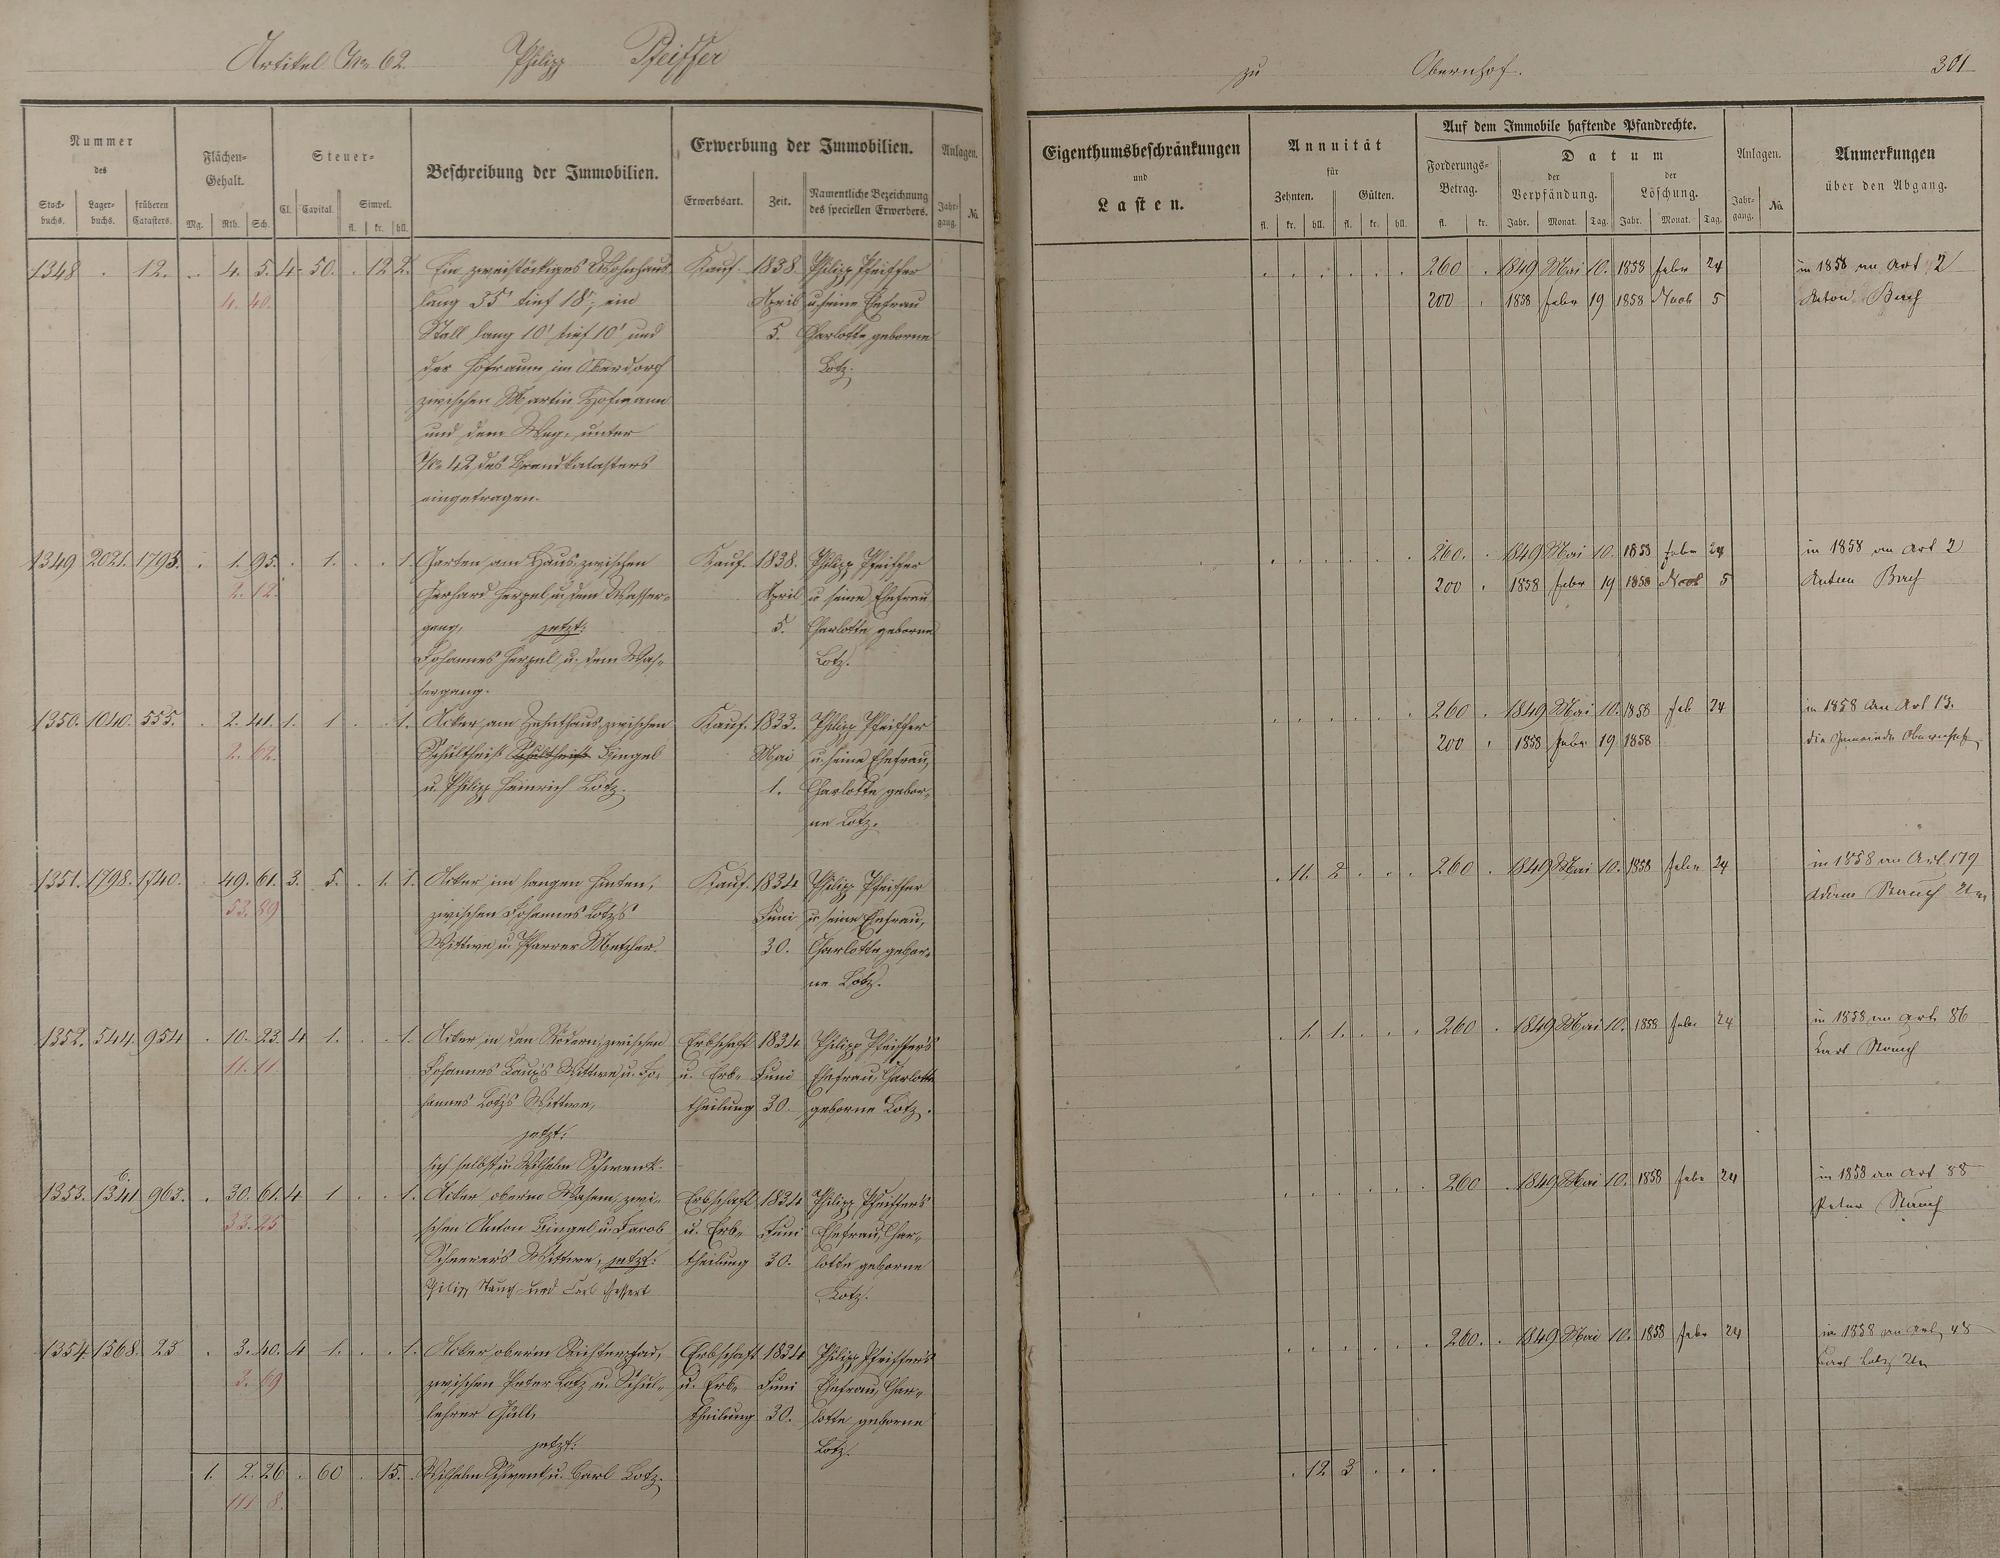 Artikel No 62. Philipp Pfeiffer
zu Obernhof. 301
Nummer
des
Stock-
buchs. Lager-
buchs. früheren
Catasters.
Flächen-
Gehalt.
Mg. Rth. Sch.
Steuer-
Cl. Capital. Simpel.
fl. kr. hll.
Beschreibung der Immobilien.
Erwerbung der Immobilien.
Erwerbsart. Zeit. Namentliche Bezeichnung
des speciellen Erwerbers.
Anlagen.
Jahr-
gang. No.
Eigenthumsbeschränkungen
und
Lasten.
Annuität
für
Zehnten. Gülten.
fl. kr. hll. fl. kr. hll.
Auf dem Immobile haftende Pfandrechte.
Forderungs-
Betrag.
fl. kr.
Datum
der
Verpfändung. der
Löschung.
Jahr. Monat. Tag. Jahr. Monat. Tag.
Anlagen.
Jahr-
gang. No.
Anmerkungen
über den Abgang.
1348 . 12. . 4. 5. 4. 50. . 12 2. Ein zweistöckiges Wohnhaus Kauf. 1838. Philipp Pfeiffer 260 . 1849 Mai 10. 1858 Febr 24 in 1858 an Art 2
4. 40. lang 35' tief 18', ein April u. seine Ehefrau 200 . 1858 Febr 19 1858 5 Anton
Stall lang 10' tief 10' und 5. Charlotte geborne
der Hofraum im Oberdorf Lotz.
zwischen Martin Hofmann
und dem Weg, unter
No 42 des Brandkatasters
eingetragen.
1349 2021. 1793. . 1. 95. . 1. . . 1. Garten am Haus, zwischen Kauf. 1838. Philipp Pfeiffer 260. . 1849 Mai 10. 1858 Febr 24 in 1858 an Art 2
2. 12. Gerhard Herzel u. dem Wasser- April u. seine Ehefrau 200 . 1858 Febr 19 1858 5 Anton
gang, jetzt: 5. Charlotte geborne
Johannes Herzel u. dem Was- Lotz.
sergang.
1350. 1040. 555. . 2. 41. 1. 1 . . 1. Acker, am Zehnthaus, zwischen Kauf. 1833. Philipp Pfeiffer 260 . 1849 Mai 10. 1858 Feb 24 in 1858 an Art 13.
2. 62. Schultheiß Schultheiß Hingel Mai u. seine Ehefrau, 200 . 1858 Febr 19 1858 die Gemeinde Obernhof
u. Philipp Heinrich Lotz. 1. Charlotte gebor-
ne Lotz.
1351. 1798. 1740. . 49. 61. 3. 5. . 1. 1. Acker im langen Hinten, Kauf. 1834 Philipp Pfeiffer . 11. 2 . . . 260 . 1849 Mai 10. 1858 Febr 24 in 1858 an Art. 179
53. 89 zwischen Johannes Lotz's Juni u. seine Ehefrau, Adam
Wittwe u. Pfarrer Metzler. 30. Charlotte gebor-
ne Lotz.
1352. 544. 954 . 10. 23. 4 1. . . 1. Acker in den Rödern, zwischen Erbschaft 1834 Philipp Pfeiffer's . 1. 1. . . . 260 . 1849 Mai 10. 1858 Febr 24 in 1858 an Art. 86
11. 11 Johannes Laux's Wittwe, u. Jo- u. Erb- Juni Ehefrau, Charlotte Karl
hannes Lotz's Wittwe, theilung 30. geborne Lotz.
jetzt:
sich selbst u. Wilhelm Schwenk.
1353. 1341 963. . 30. 61. 4 1 . . 1. Acker oberm Wasem, zwi- Erbschaft 1834 Philipp Pfeiffer's 260 . 1849 Mai 10. 1858 Febr 24 in 1858 an Art 88
33. 25 schen Anton Hingel u. Jacob u. Erb- Juni Ehefrau, Char- Peter
Scheerer's Wittwe, jetzt: theilung 30. lotte geborne
Philipp und Carl Lotz.
1354 1568. 23 . 3. 40. 4 1. . . 1. Acker oberm Kistenpfad, Erbschaft 1834 Philipp Pfeiffer's 260. . 1849 Mai 10. 1858 Febr 24 in 1858 an Art. 48
3. 69 zwischen Peter Lotz u. Schul- u. Erb- Juni Ehefrau, Char- Carl Lotz
lehrer Güll, theilung 30. lotte geborne
jetzt: Lotz.
1. 2. 26 . 60 . 15. Wilhelm Schwenk u. Carl Lotz. . 12 3 . . .
111 8.